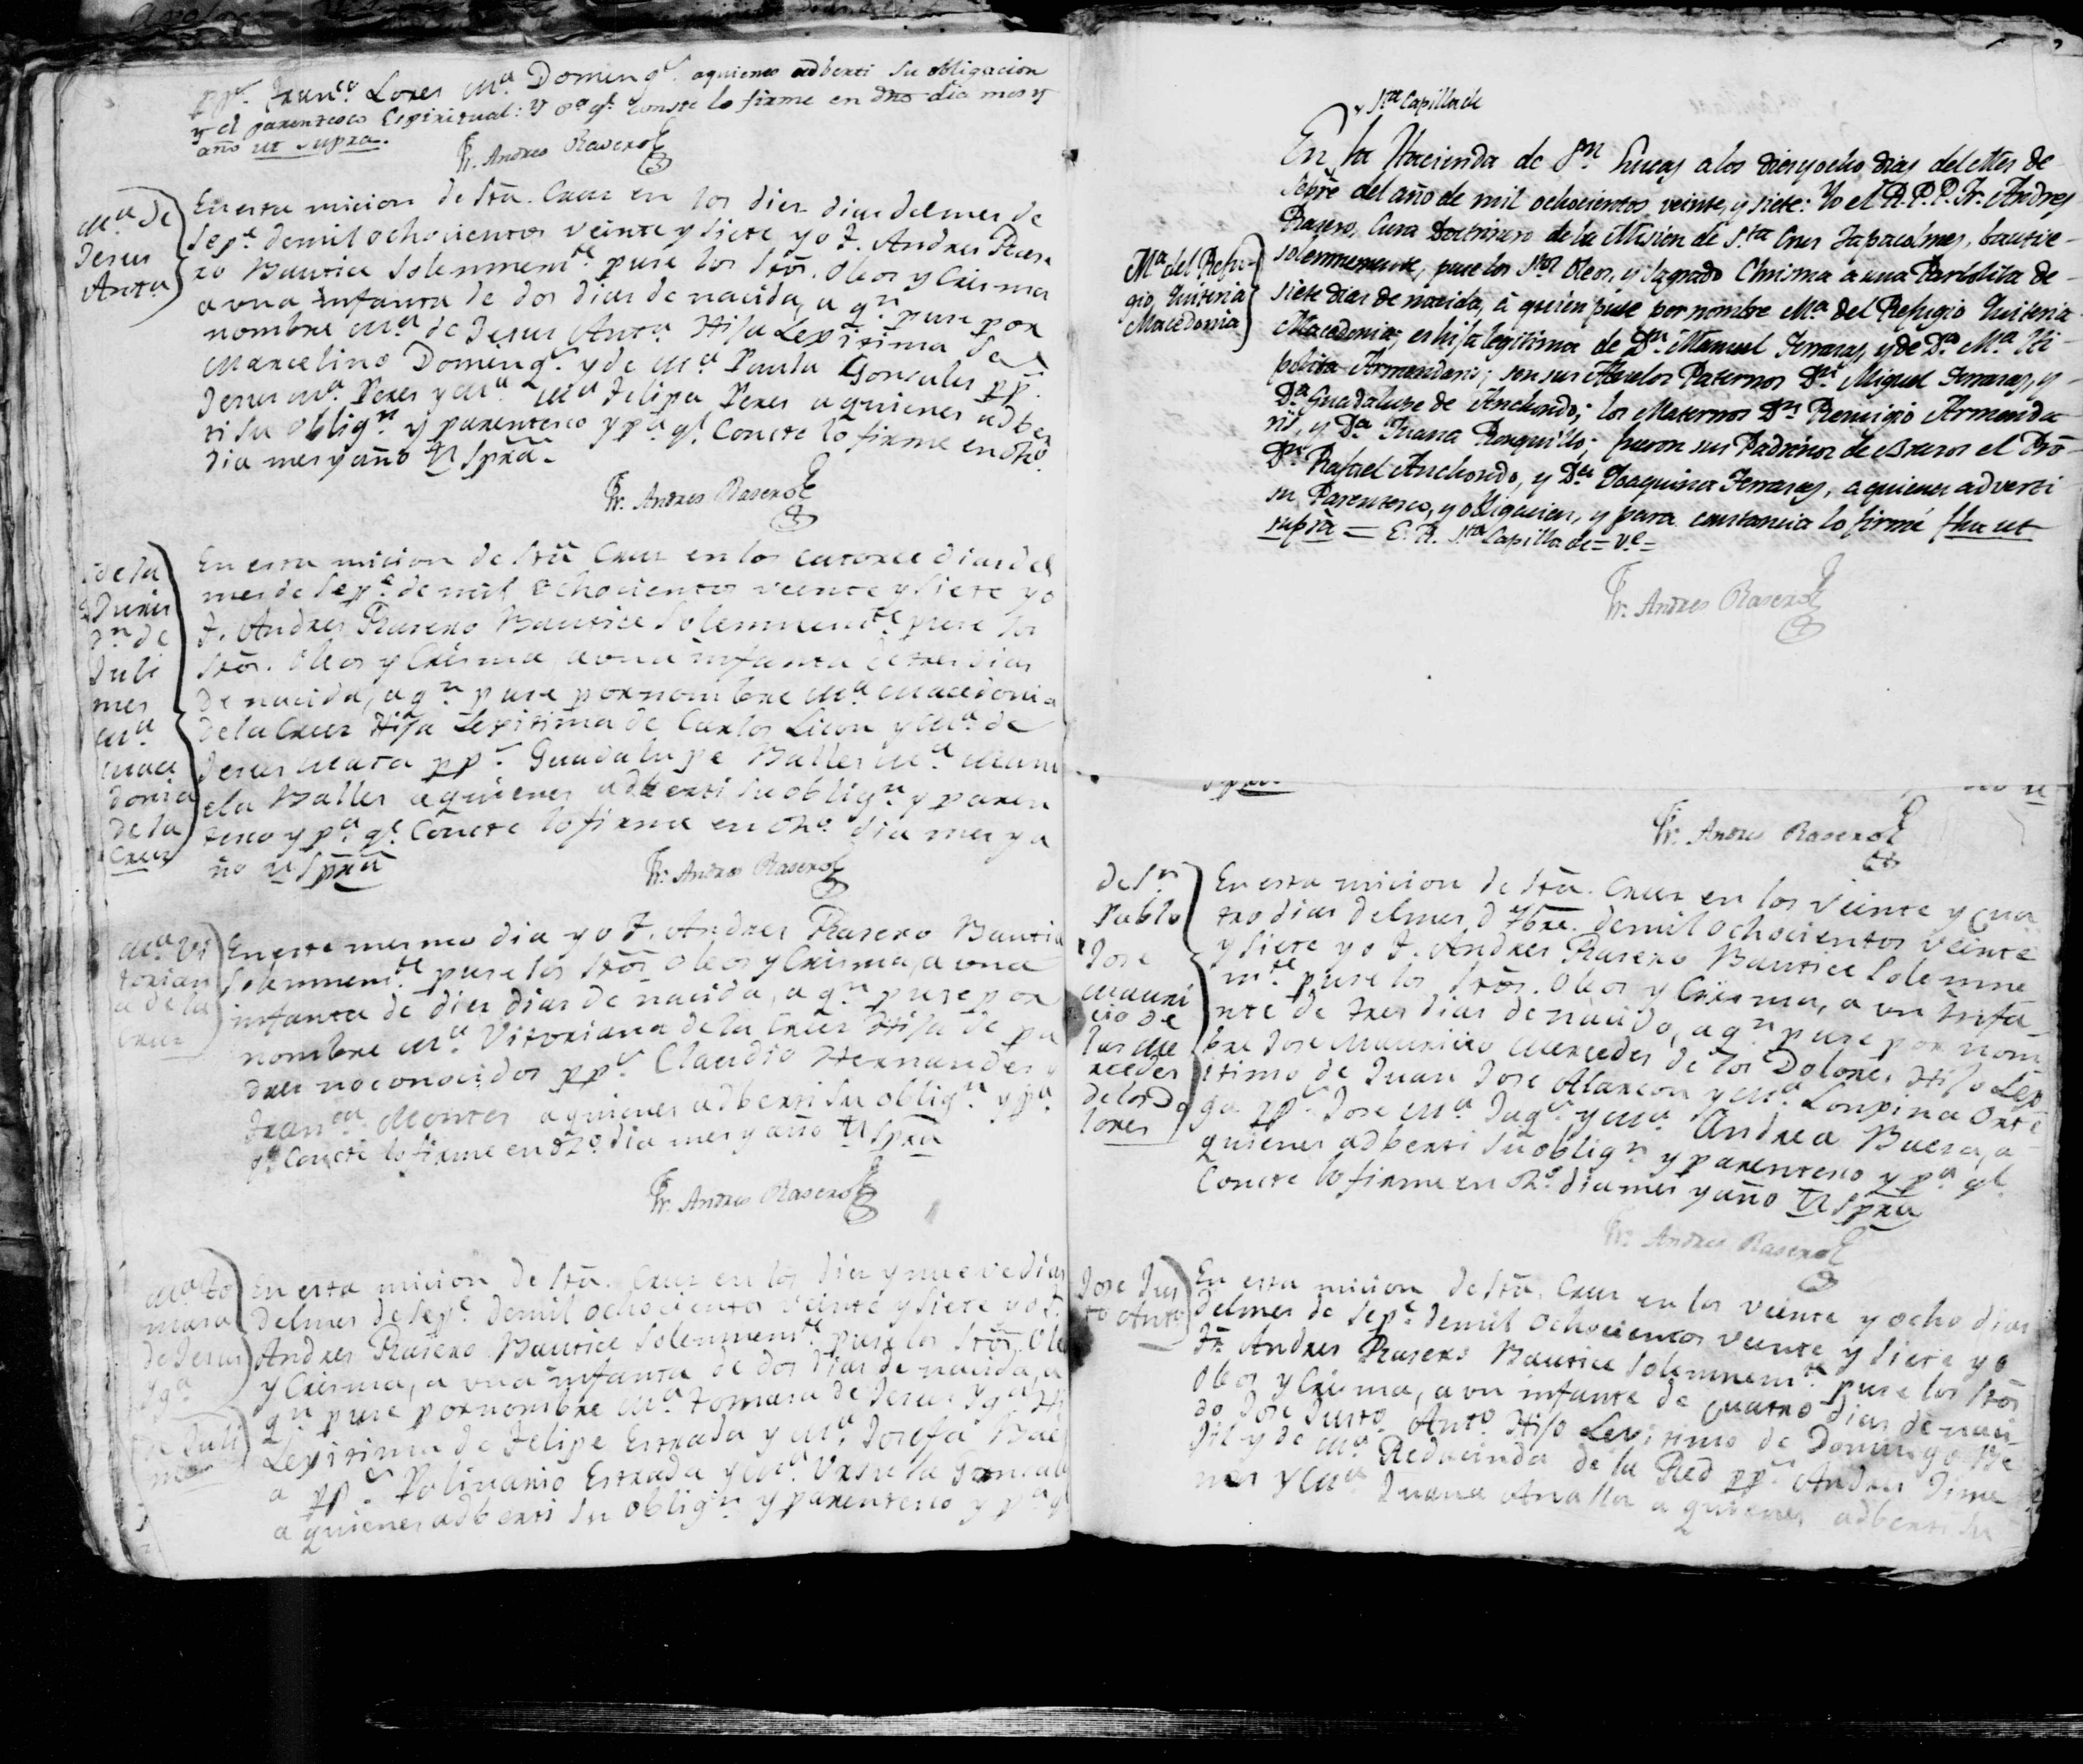 pp.s Fran.ca Lores M.a Doming.s aquienes adberti su obligacion
y el parentesco Espiritual: Y p.a q.e conste lo firme en dho dia mes y
año ut supra.
Fr. Andres Rasero
M.a de
Jesus
Anta
En esta micion de Sta. Cruz en los dies dias del mes de
Sep.e de mil ochocientos veinte y siete yo F. Andres Rase
ro Bautice Solemnem.te puse los Stos. Oleos y Crisma
a vna Infanta de dos dias de nacida, a q.n puse por
nombre M.a de Jesus Anta. Hija Legitima de
Marcelino Doming.s y de M.a Paula Gonsales pp.s
Jesus M.a Peres y M.a Felipa Peres a quienes adber
ti su oblig.n y parentesco y p.a q.e Concte lo firme en dho.
dia mes y año Ut Spra.
Fr. Andres Rasero
de la
Juris
d.n de
Juli
mes
M.a
Mace
donia
de la
Cruz
En esta micion de Sta Cruz en los catorce dias del
mes de Sep.e de mil ochocientos veinte y siete yo
F. Andres Rasero Bautice Solemnem.te puse los
Stos. Oleos y Crisma, a vna infanta de tres dias
de nacida, a q.n puse por nombre M.a Macedonia
de la Cruz Hija Legitima de Carlos Licon y M.a de
Jesus Mata pp.s Guadalupe Balles M.a Manu
ela Balles aquienes adberti su oblig.n y paren
tesco y p.a q.e Concte lo firme en dho. dia mes y a
ño Ut Spra
Fr. Andres Rasero
M.a Vi
torian
a de la
Cruz
En este mesmo dia yo F. Andres Rasero Bautice
Solemnem.te puse los Stos Oleos y Crisma, a vna
infanta de dies dias de nacida, a q.n puse por
nombre M.a Vitoriana de la Cruz Hija de pa
dres no conocidos pp.s Claudio Hernandes y
Fran.ca Montes aquienes adberti su oblig.n y p.a
q.e Concte lo firme en dho. dia mes y año Ut Spra
Fr. Andres Rasero
M.a To
masa
de Jesus
Yg.a
Juli
mes
En esta micion de Sta. Cruz en los dies y nueve dias
del mes de Sep.e de mil ochocientos veinte y siete yo F.
Andres Rasero Bautice Solemnem.te puse los Stos Ole
y Crisma, a vna infanta de dos dias de nacida, a
q.n puse por nombre M.a Tomasa de Jesus Yg.a Hi
Legitima de Felipe Estrada y M.a Josefa Bae
a pp.s Polinario Estrada y M.a Ursula Gonsale
a quienes adberti su oblig.n y parentesco y p.a q.e
Sta Capilla de
En la Hacienda de Sn. Lucas a los dies y ocho dias del Mes de
Sepre del año de mil ochocientos veinte, y siete: Yo el R. P. P. Fr. Andres
Rasero, Cura Doctrinero de la Mision de Sta Crus Tapacolmes, bautise
solemnemente, puse los Stos Oleos, y Sagrado Chrisma a una Parbolita de
siete dias de nacida, á quien puse por nombre Ma del Refugio Quiteria
Macedonia; es hija legitima de Dn. Manuel Terrasas, y de Da. Ma. Hi-
polita Armendaris; son sus Abuelos Paternos Dn Miguel Terrasas, y
Da. Guadalupe de Anchondo; los Maternos Dn Remigio Armenda
ris, y Da Juana Ronquillo; fueron sus Padrinos de Brasos el Pro
Dn Rafael Anchondo, y Da Joaquina Terrasas, a quienes adverti
su Parentesco, y obligacion, y para constancia lo firmé fha ut
supra = E. R. Sta Capilla de = Ve =
Ma del Refu-
gio Quiteria
Macedonia
Fr. Andres Rasero
Spra
Fr. Andres Rasero
de Sn
Pablo
Jose
Mauri
cio de
las Me
rcedes
de los Do
lores
En esta micion de Sta. Cruz en los veinte y cua
tro dias del mes d 7bre. de mil ochocientos veinte
y siete yo F. Andres Rasero Bautice Solemne
m.te puse los Stos. Oleos y Crisma, a vn Infa
nte de tres dias de nacido, a q.n puse por nom
bre Jose Mauricio Mercedes de los Dolores Hijo Leg
itimo de Juan Jose Alarcon y M.a Loupina Orte
ga pp.s Jose M.a Jaq.s y M.a Andrea Baesa, a
quienes adberti su oblig.n y parentesco y p.a q.e
Concte lo firme en dho. dia mes y año Ut Spra
Fr. Andres Rasero
Jose Jus
to Anto
En esta micion de Sta. Cruz en los veinte y ocho dias
del mes de Sep.e de mil ochocientos veinte y siete yo
Fr. Andres Rasero Bautice Solemnem.te puse los Stos
Oleos y Crisma, a vn infante de cuatro dias de naci
do Jose Justo Anto Hijo Legitimo de Domingo Be
jil y de M.a Reducinda de la Red pp.s Andres Jime
nes y M.a Juana Analla a quienes adberti su